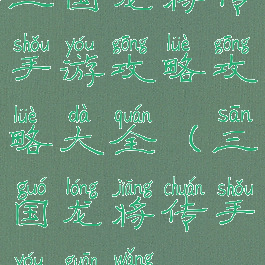 三国龙将传
shǒu yóu gōng lüè gōng
手游攻略攻
lüè dà quán sān
略大全（三
guó lóng jiāng chuán shǒu
国龙将传手
yóu guān wǎng